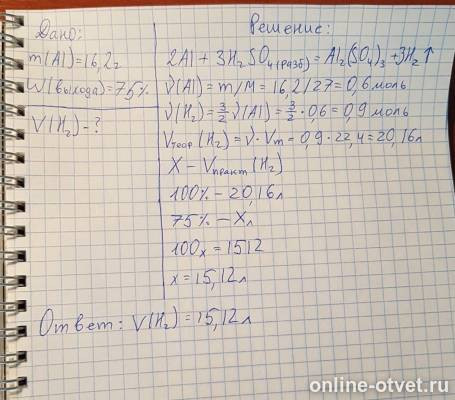 Дано:
m(Al)=16,2г
W(выхода)=75%
V(H₂)-?
Решение:
2Al+3H₂SO₄(разб)=Al₂(SO₄)₃+3H₂↑
ν(Al)=m/M=16,2/27=0,6моль
ν(H₂)=3/2ν(Al)=3/2·0,6=0,9моль
Vтеор(H₂)=ν·Vm=0,9·22,4=20,16л
X-Vпракт(H₂)
100%-20,16л
75%-Xл
100x=1512
x=15,12л
Ответ: V(H₂)=15,12л
online-otvet.ru